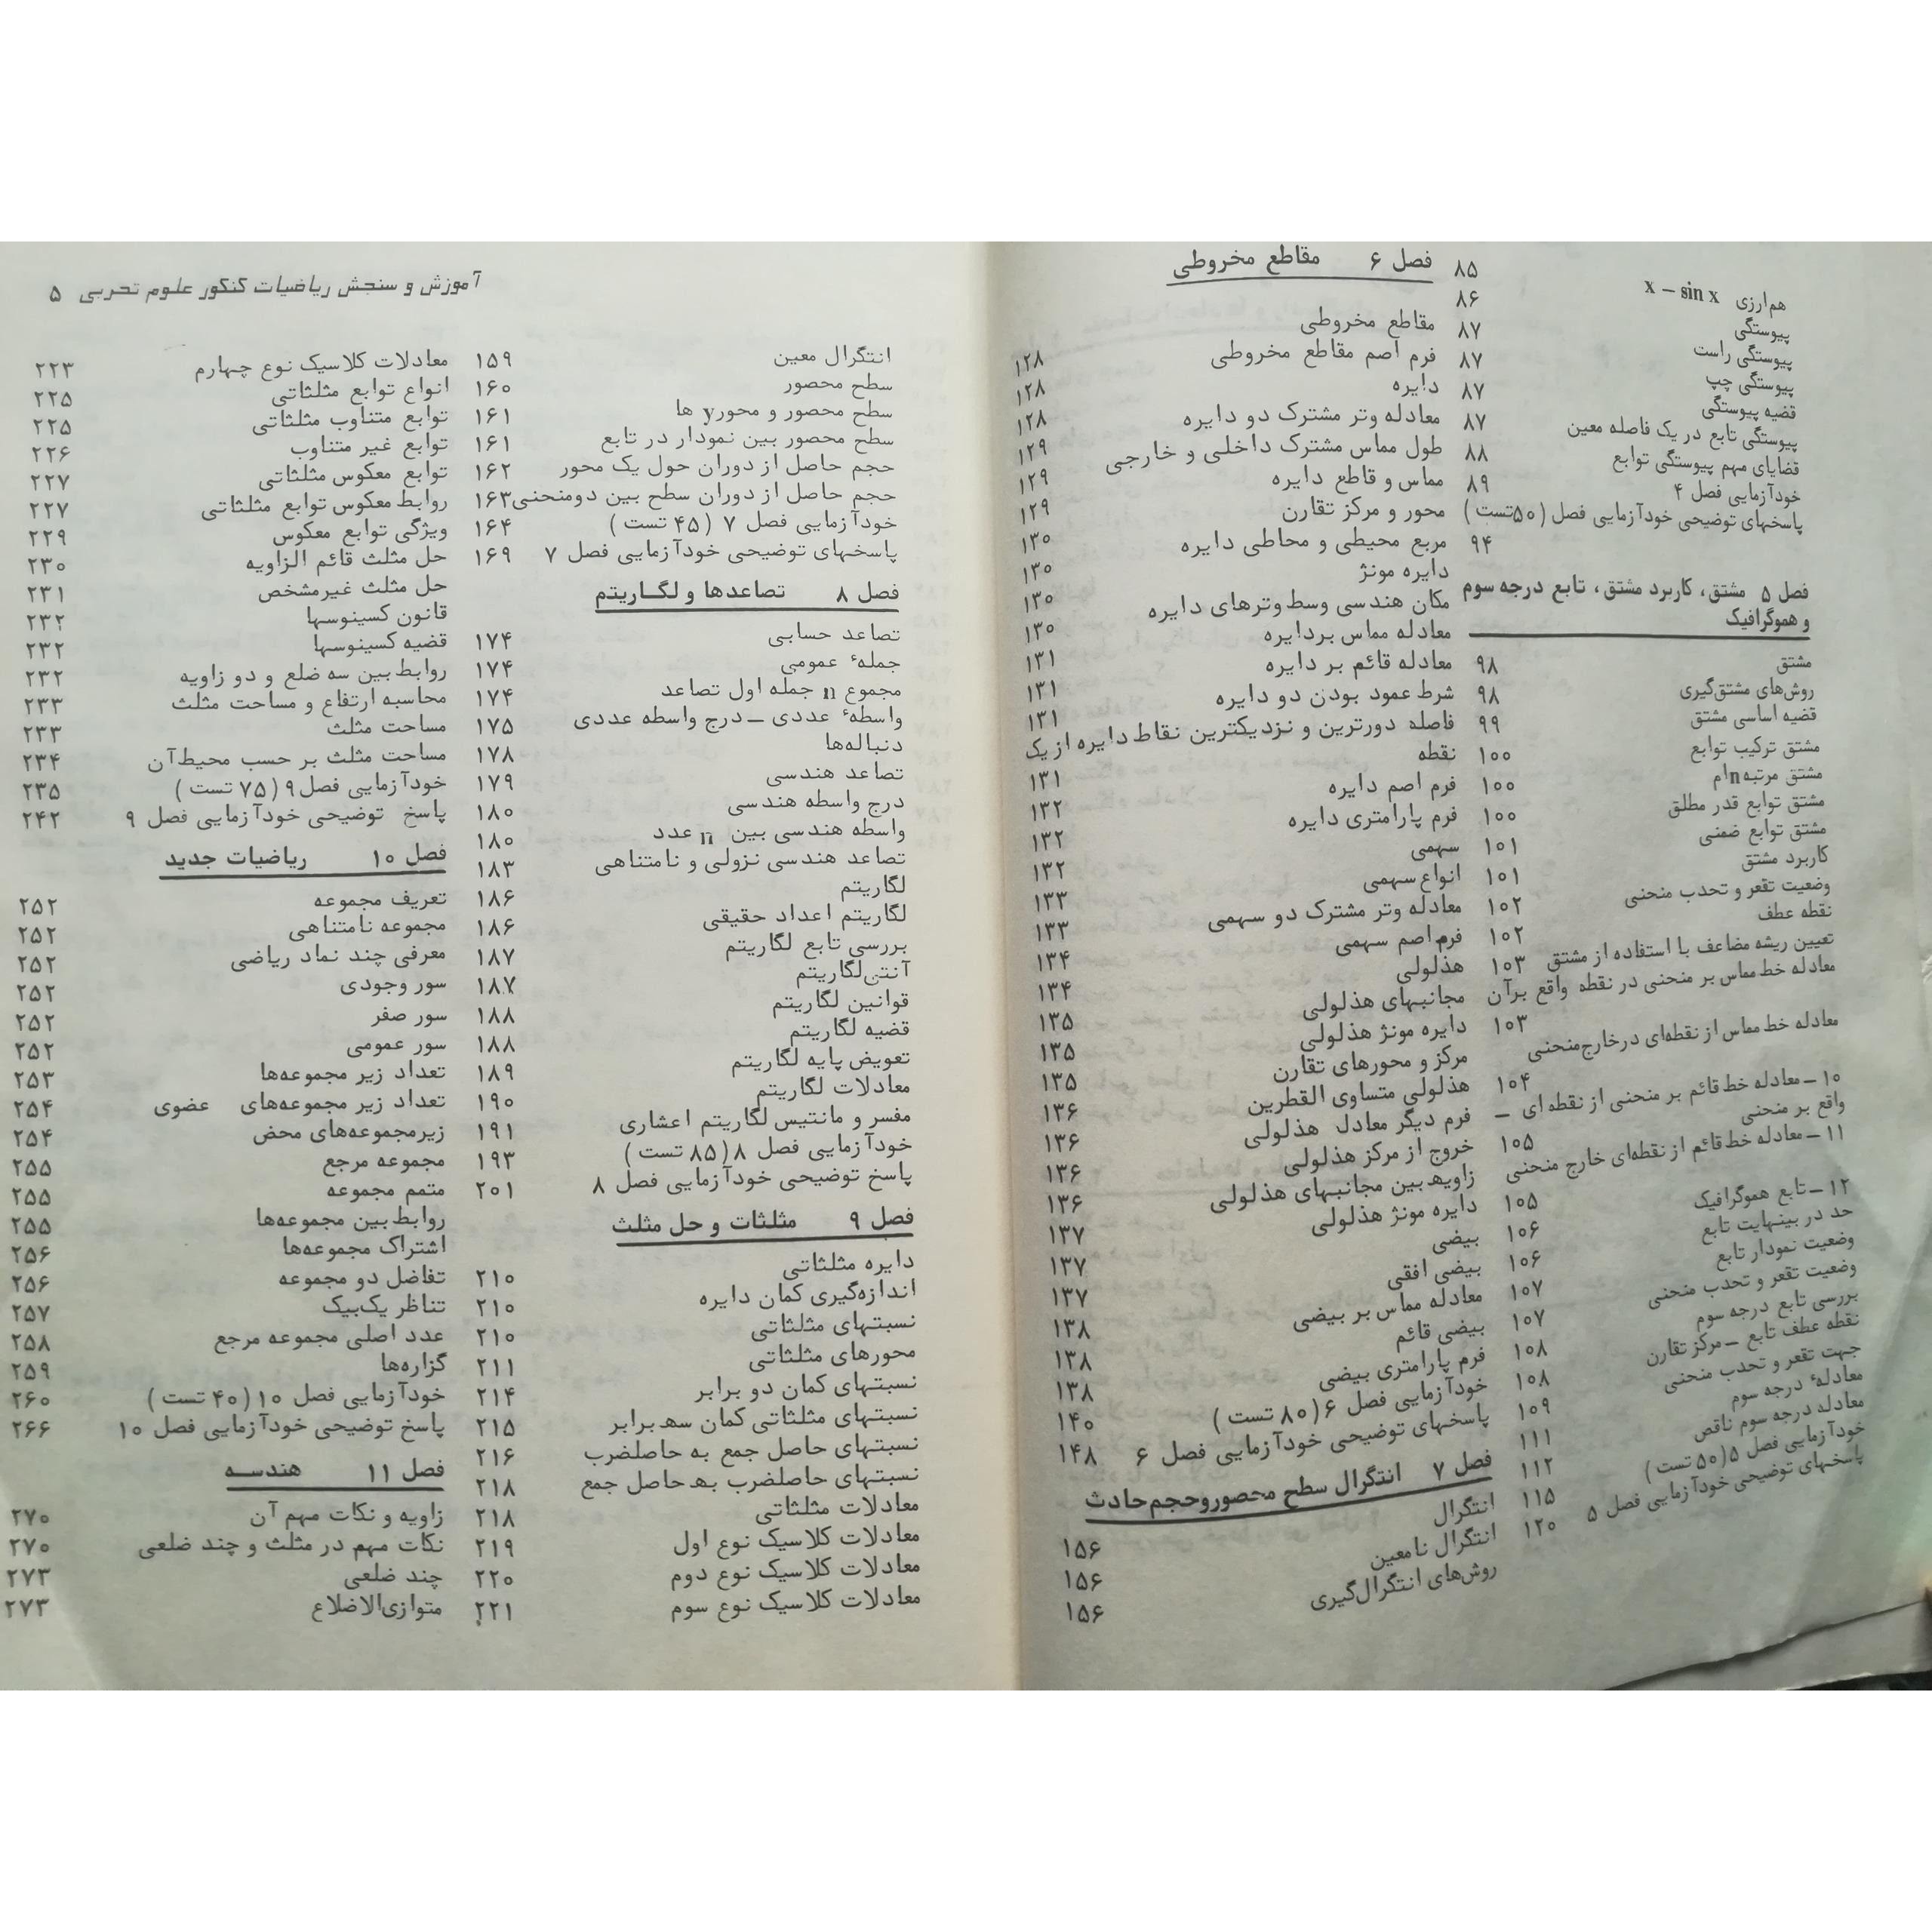 هم‌ارزی x – sin x ۸۵
پیوستگی ۸۶
پیوستگی راست ۸۷
پیوستگی چپ ۸۷
قضیه پیوستگی ۸۷
پیوستگی تابع در یک فاصله معین ۸۷
قضایای مهم پیوستگی توابع ۸۸
خودآزمایی فصل ۴ ۸۹
پاسخهای توضیحی خودآزمایی فصل (۵۰تست) ۹۴
فصل ۵ مشتق، کاربرد مشتق، تابع درجه سوم
و هموگرافیک
مشتق ۹۸
روش‌های مشتق‌گیری ۹۸
قضیه اساسی مشتق ۹۹
مشتق ترکیب توابع ۱۰۰
مشتق مرتبه nام ۱۰۰
مشتق توابع قدر مطلق ۱۰۰
مشتق توابع ضمنی ۱۰۱
کاربرد مشتق ۱۰۱
وضعیت تقعر و تحدب منحنی ۱۰۲
نقطه عطف ۱۰۲
تعیین ریشه مضاعف با استفاده از مشتق ۱۰۳
معادله خط مماس بر منحنی در نقطه واقع برآن
۱۰۳
معادله خط مماس از نقطه‌ای درخارج‌منحنی
۱۰۴
۱۰ – معادله خط قائم بر منحنی از نقطه‌ای –
واقع بر منحنی ۱۰۵
۱۱ – معادله خط قائم از نقطه‌ای خارج منحنی
۱۰۵
۱۲ – تابع هموگرافیک ۱۰۶
حد در بینهایت تابع ۱۰۶
وضعیت نمودار تابع ۱۰۷
وضعیت تقعر و تحدب منحنی ۱۰۷
بررسی تابع درجه سوم ۱۰۸
نقطه عطف تابع – مرکز تقارن ۱۰۸
جهت تقعر و تحدب منحنی ۱۰۹
معادلهٔ درجه سوم ۱۱۱
معادله درجه سوم ناقص ۱۱۲
خودآزمایی فصل ۵ (۵۰ تست) ۱۱۵
پاسخهای توضیحی خودآزمایی فصل ۵ ۱۲۰
فصل ۶ مقاطع مخروطی
مقاطع مخروطی ۱۲۸
فرم اصم مقاطع مخروطی ۱۲۸
دایره ۱۲۸
معادله وتر مشترک دو دایره ۱۲۹
طول مماس مشترک داخلی و خارجی ۱۲۹
مماس و قاطع دایره ۱۲۹
محور و مرکز تقارن ۱۳۰
مربع محیطی و محاطی دایره ۱۳۰
دایره مونژ ۱۳۰
مکان هندسی وسط وترهای دایره ۱۳۰
معادله مماس بردایره ۱۳۱
معادله قائم بر دایره ۱۳۱
شرط عمود بودن دو دایره ۱۳۱
فاصله دورترین و نزدیکترین نقاط دایره از یک
نقطه ۱۳۱
فرم اصم دایره ۱۳۲
فرم پارامتری دایره ۱۳۲
سهمی ۱۳۲
انواع سهمی ۱۳۳
معادله وتر مشترک دو سهمی ۱۳۳
فرم اصم سهمی ۱۳۴
هذلولی ۱۳۴
مجانبهای هذلولی ۱۳۵
دایره مونژ هذلولی ۱۳۵
مرکز و محورهای تقارن ۱۳۵
هذلولی متساوی القطرین ۱۳۶
فرم دیگر معادل هذلولی ۱۳۶
خروج از مرکز هذلولی ۱۳۶
زاویه بین مجانبهای هذلولی ۱۳۶
دایره مونژ هذلولی ۱۳۷
بیضی ۱۳۷
بیضی افقی ۱۳۷
معادله مماس بر بیضی ۱۳۸
بیضی قائم ۱۳۸
فرم پارامتری بیضی ۱۳۸
خودآزمایی فصل ۶ (۸۰ تست) ۱۴۰
پاسخهای توضیحی خودآزمایی فصل ۶ ۱۴۸
فصل ۷ انتگرال سطح محصور و حجم حادث
انتگرال ۱۵۶
انتگرال نامعین ۱۵۶
روش‌های انتگرال‌گیری ۱۵۶
آموزش و سنجش ریاضیات کنکور علوم تجربی ۵
انتگرال معین ۱۵۹
سطح محصور ۱۶۰
سطح محصور و محور y ها ۱۶۱
سطح محصور بین نمودار در تابع ۱۶۱
حجم حاصل از دوران حول یک محور ۱۶۲
حجم حاصل از دوران سطح بین دومنحنی ۱۶۳
خودآزمایی فصل ۷ (۴۵ تست) ۱۶۴
پاسخهای توضیحی خودآزمایی فصل ۷ ۱۶۹
فصل ۸ تصاعدها و لگاریتم
تصاعد حسابی ۱۷۴
جملهٔ عمومی ۱۷۴
مجموع n جمله اول تصاعد ۱۷۴
واسطهٔ عددی – درج واسطه عددی ۱۷۵
دنباله‌ها ۱۷۸
تصاعد هندسی ۱۷۹
درج واسطه هندسی ۱۸۰
واسطه هندسی بین n عدد ۱۸۰
تصاعد هندسی نزولی و نامتناهی ۱۸۳
لگاریتم ۱۸۶
لگاریتم اعداد حقیقی ۱۸۶
بررسی تابع لگاریتم ۱۸۷
آنتی‌لگاریتم ۱۸۷
قوانین لگاریتم ۱۸۸
قضیه لگاریتم ۱۸۸
تعویض پایه لگاریتم ۱۸۹
معادلات لگاریتم ۱۹۰
مفسر و مانتیس لگاریتم اعشاری ۱۹۱
خودآزمایی فصل ۸ (۸۵ تست) ۱۹۳
پاسخ توضیحی خودآزمایی فصل ۸ ۲۰۱
فصل ۹ مثلثات و حل مثلث
دایره مثلثاتی ۲۱۰
اندازه‌گیری کمان دایره ۲۱۰
نسبتهای مثلثاتی ۲۱۰
محورهای مثلثاتی ۲۱۱
نسبتهای کمان دو برابر ۲۱۴
نسبتهای مثلثاتی کمان سه برابر ۲۱۵
نسبتهای حاصل جمع به حاصلضرب ۲۱۶
نسبتهای حاصلضرب به حاصل جمع ۲۱۸
معادلات مثلثاتی ۲۱۸
معادلات کلاسیک نوع اول ۲۱۹
معادلات کلاسیک نوع دوم ۲۲۰
معادلات کلاسیک نوع سوم ۲۲۱
معادلات کلاسیک نوع چهارم ۲۲۳
انواع توابع مثلثاتی ۲۲۵
توابع متناوب مثلثاتی ۲۲۵
توابع غیر متناوب ۲۲۶
توابع معکوس مثلثاتی ۲۲۷
روابط معکوس توابع مثلثاتی ۲۲۷
ویژگی توابع معکوس ۲۲۹
حل مثلث قائم الزاویه ۲۳۰
حل مثلث غیرمشخص ۲۳۱
قانون کسینوسها ۲۳۲
قضیه کسینوسها ۲۳۲
روابط بین سه ضلع و دو زاویه ۲۳۲
محاسبه ارتفاع و مساحت مثلث ۲۳۳
مساحت مثلث ۲۳۳
مساحت مثلث بر حسب محیط‌آن ۲۳۴
خودآزمایی فصل ۹ (۷۵ تست) ۲۳۵
پاسخ توضیحی خودآزمایی فصل ۹ ۲۴۲
فصل ۱۰ ریاضیات جدید
تعریف مجموعه ۲۵۲
مجموعه نامتناهی ۲۵۲
معرفی چند نماد ریاضی ۲۵۲
سور وجودی ۲۵۲
سور صفر ۲۵۲
سور عمومی ۲۵۲
تعداد زیر مجموعه‌ها ۲۵۳
تعداد زیر مجموعه‌های عضوی ۲۵۴
زیرمجموعه‌های محض ۲۵۴
مجموعه مرجع ۲۵۵
متمم مجموعه ۲۵۵
روابط بین مجموعه‌ها ۲۵۵
اشتراک مجموعه‌ها ۲۵۶
تفاضل دو مجموعه ۲۵۶
تناظر یک‌بیک ۲۵۷
عدد اصلی مجموعه مرجع ۲۵۸
گزاره‌ها ۲۵۹
خودآزمایی فصل ۱۰ (۴۰ تست) ۲۶۰
پاسخ توضیحی خودآزمایی فصل ۱۰ ۲۶۶
فصل ۱۱ هندسه
زاویه و نکات مهم آن ۲۷۰
نکات مهم در مثلث و چند ضلعی ۲۷۰
چند ضلعی ۲۷۳
متوازی‌الاضلاع ۲۷۳